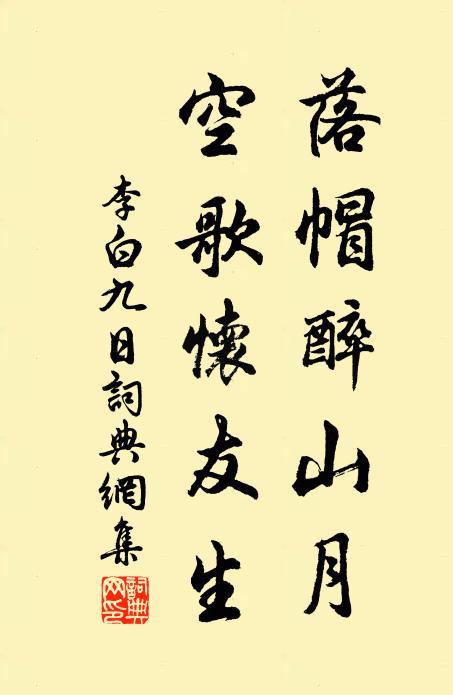 落帽醉山月
空歌懷友生
李白九日詞典網集
詞典網印